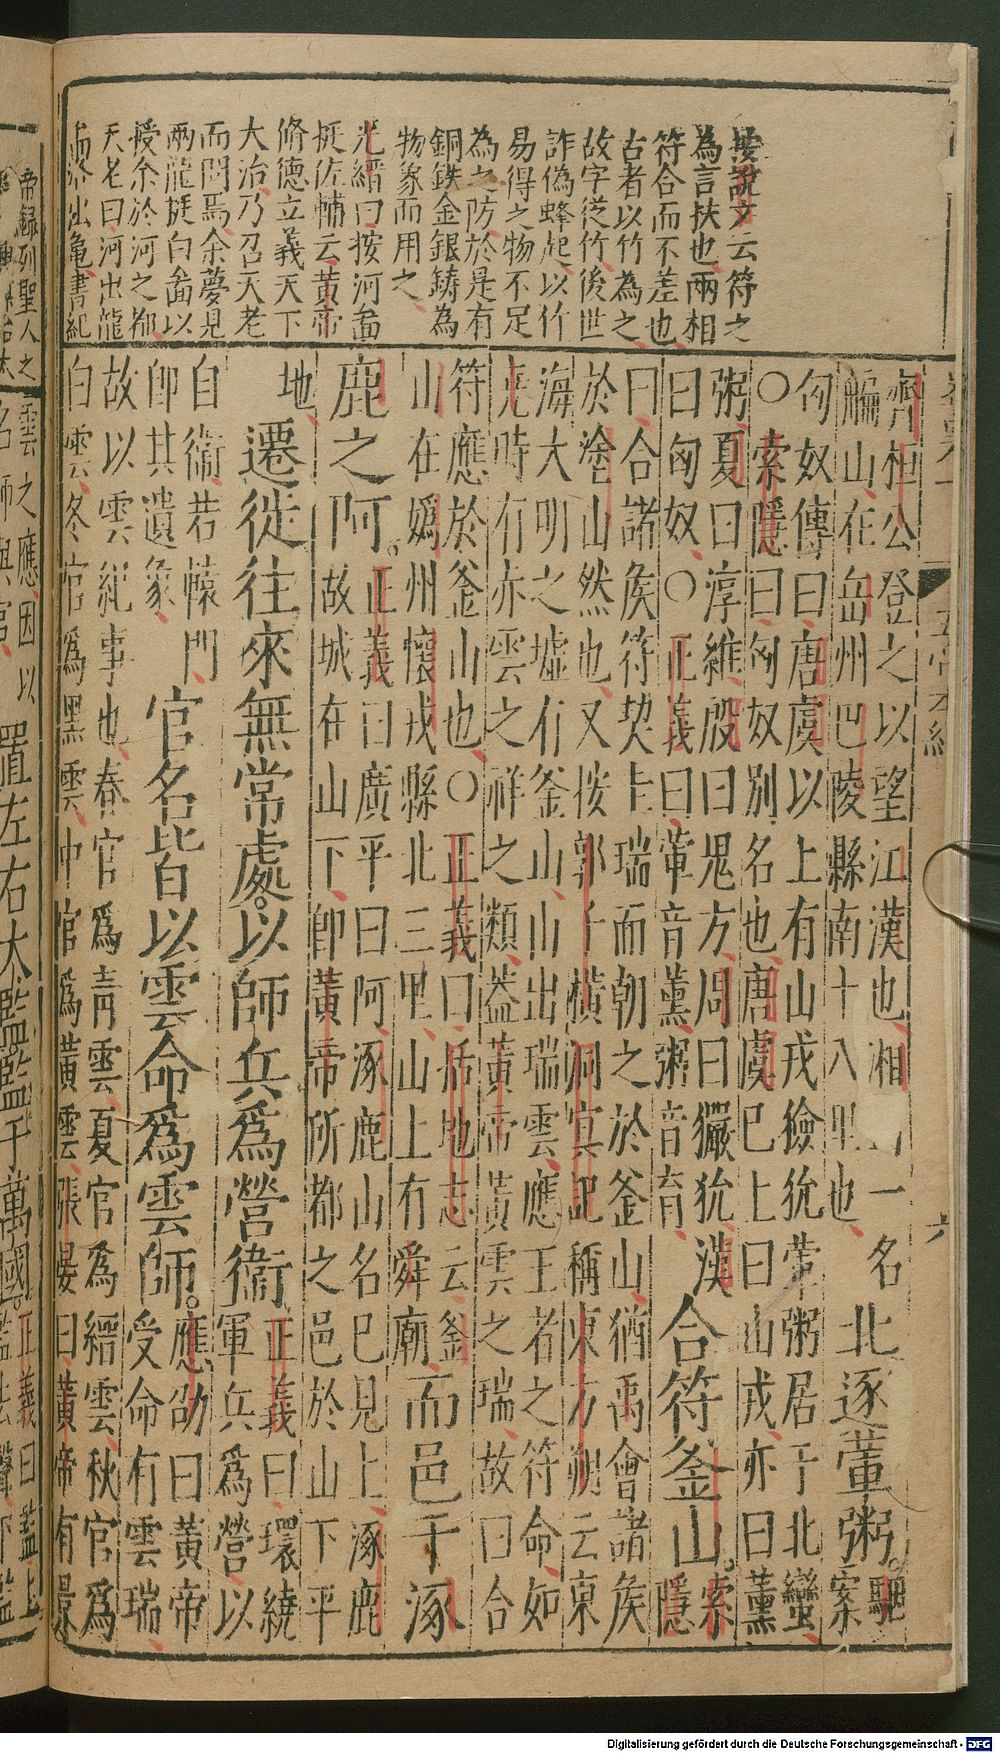 按說文云符之
為言扶也兩相
符合而不差也
古者以竹為之
故字從竹後世
詐偽蜂起以竹
易得之物不足
為之防於是有
銅鉄金銀鑄為
物象而用之
光縉曰按河啚
挺佐輔云黃帝
脩德立義天下
大治乃召天老
而問焉余夢見
兩龍挺白啚以
授余於河之都
天老曰河出龍
啚洛出龜書紀
帝録列聖人之
五帝本紀 六
齊桓公登之以望江漢也湘山一名
艑山在岳州巴陵縣南十八里也 北逐葷粥。駰案
匈奴傳曰唐虞以上有山戎獫狁葷粥居于北蠻
○索隱曰匈奴別名也唐虞已上曰山戎亦曰薰
粥夏曰淳維殷曰鬼方周曰玁狁漢
曰匈奴○正義曰葷音薰粥音育 合符釜山。索隱
曰合諸侯符契圭瑞而朝之於釜山猶禹會諸侯
於塗山然也又按郭子橫洞冥記稱東方朔云東
海大明之墟有釜山山出瑞雲應王者之符命如
堯時有赤雲之祥之類葢黃帝黃雲之瑞故曰合
符應於釜山也○正義曰括地志云釜
山在嬀州懷戎縣北三里山上有舜廟 而邑于涿
鹿之阿。正義曰廣平曰阿涿鹿山名已見上涿鹿
故城在山下卽黃帝所都之邑於山下平
地 遷徙往來無常處。以師兵爲營衞 正義曰環繞
軍兵爲營以
自衞若轅門
卽其遺象 官名皆以雲命爲雲師。應劭曰黃帝
受命有雲瑞
故以雲紀事也春官爲靑雲夏官爲縉雲秋官爲
白雲冬官爲黑雲中官爲黃雲張晏曰黃帝有景
雲之應因以
名師與官 置左右大監監于萬國。正義曰監上
監去聲下監
Digitalisierung gefördert durch die Deutsche Forschungsgemeinschaft - DFG